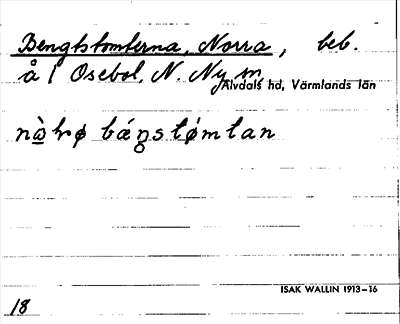 Bengtstomterna, Norra, beb.
å 1 Osebol, N. Ny sn
Älvdals hd, Värmlands län
nò̱rø báŋstømtan
ISAK WALLIN 1913–16
18